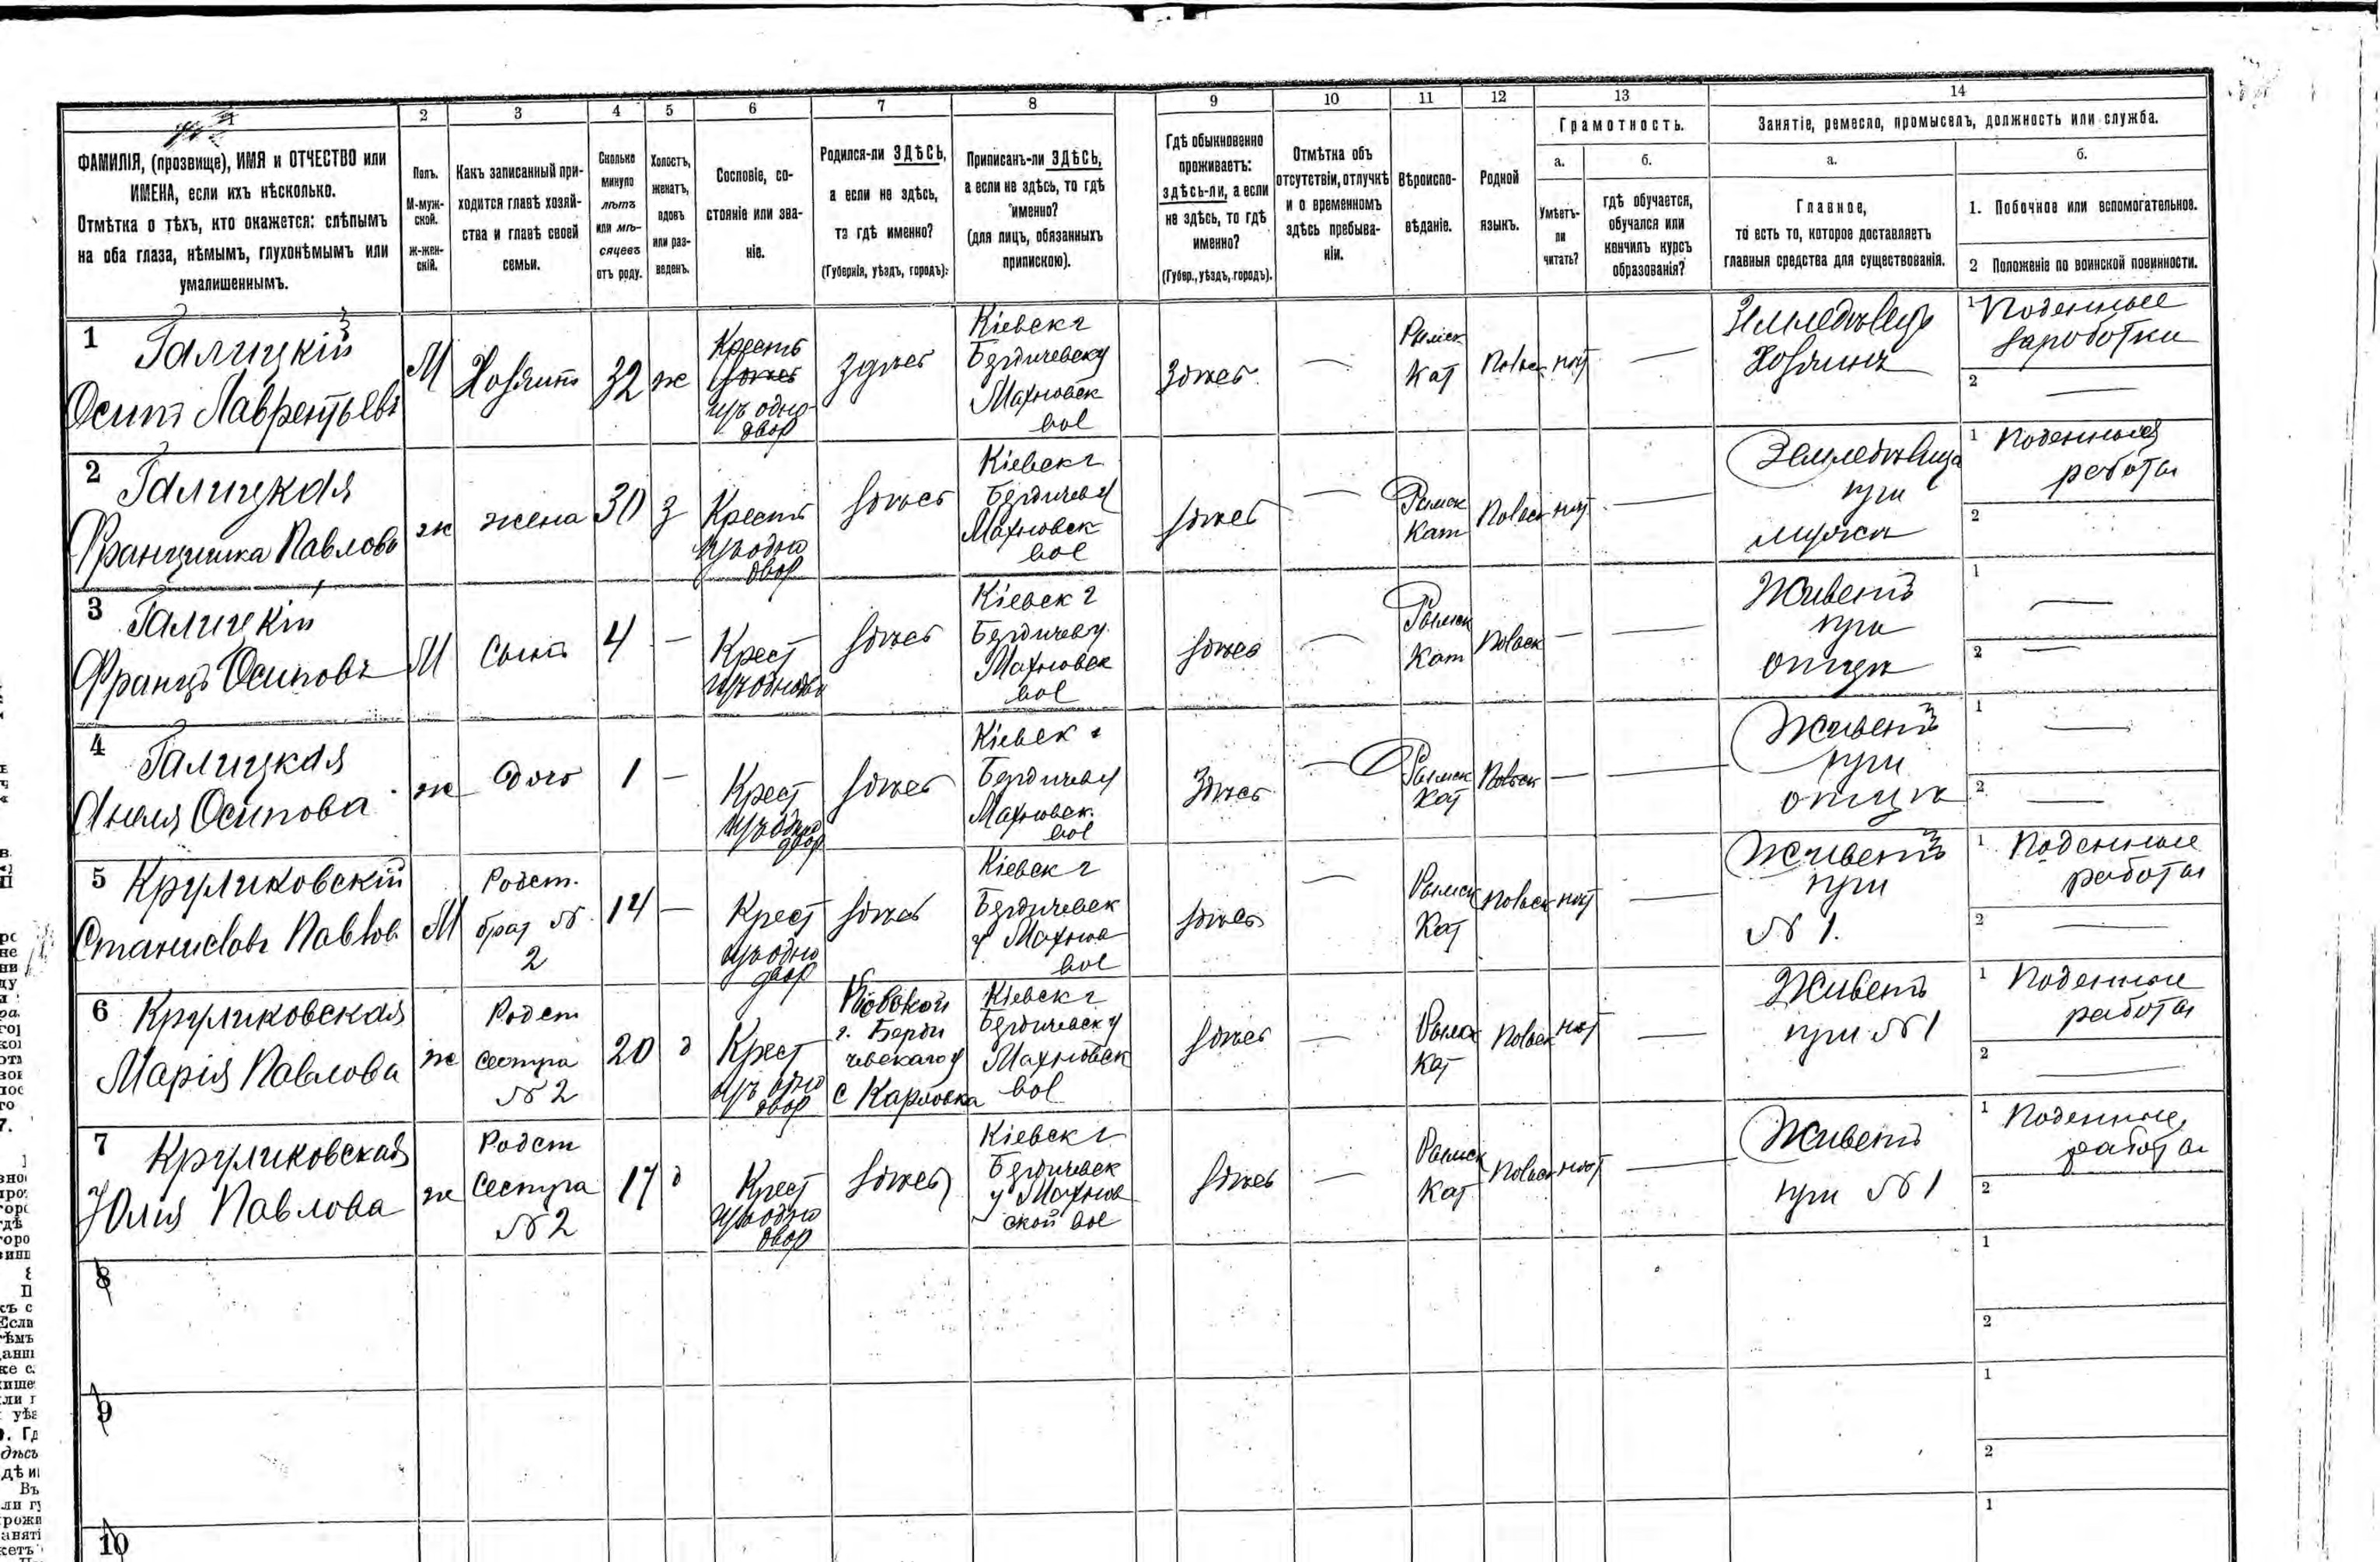 1 2 3 4 5 6 7 8 9 10 11 12 13 14
ФАМИЛІЯ, (прозвище), ИМЯ и ОТЧЕСТВО или
ИМЕНА, если ихъ нѣсколько.
Отмѣтка о тѣхъ, кто окажется: слѣпымъ
на оба глаза, нѣмымъ, глухонѣмымъ или
умалишеннымъ.
Полъ.
М-муж-
ской.
Ж-жен-
скій.
Какъ записанный при-
ходится главѣ хозяй-
ства и главѣ своей
семьи.
Сколько
минуло
лѣтъ
или мѣ-
сяцевъ
отъ роду.
Холостъ,
женатъ,
вдовъ
или раз-
веденъ.
Сословіе, со-
стояніе или зва-
ніе.
Родился-ли ЗДѢСЬ,
а если не здѣсь,
то гдѣ именно?
(Губернія, уѣздъ, городъ).
Приписанъ-ли ЗДѢСЬ,
а если не здѣсь, то гдѣ
именно?
(для лицъ, обязанныхъ
припискою).
Гдѣ обыкновенно
проживаетъ:
здѣсь-ли, а если
не здѣсь, то гдѣ
именно?
(Губер., уѣздъ, городъ).
Отмѣтка объ
отсутствіи, отлучкѣ
и о временномъ
здѣсь пребыва-
ніи.
Вѣроиспо-
вѣданіе.
Родной
языкъ.
Грамотность.
а.
Умѣетъ-
ли
читать?
б.
гдѣ обучается,
обучался или
кончилъ курсъ
образованія?
Занятіе, ремесло, промыселъ, должность или служба.
а.
Главное,
то есть то, которое доставляетъ
главныя средства для существованія.
б.
1. Побочное или вспомогательное.
2 Положеніе по воинской повинности.
1 Галицкій
Осипъ Лаврентьевъ
М
Хозяинъ
32
ж
Крестъ
изъ одно-
двор
здѣсь
Кіевск г
Бердичевск у
Махновск
вол
здѣсь
—
Римск
Кат
Польск
нѣт
—
Земледѣлец
Хозяинъ
1 Поденные
заработки
2 —
2 Галицкая
Францишка Павлова
ж
жена
30
з
Крестъ
изъ одно
двор
здѣсь
Кіевск г
Бердичев у
Махновск
вол
здѣсь
—
Римск
Кат
Польск
нѣт
—
Земледѣлица
при
мужѣ
1 Поденныя
работы
2
3 Галицкій
Францъ Осиповъ
М
Сынъ
4
—
Крест
изъ однодв
здѣсь
Кіевск г
Бердичев у
Махновск
вол
здѣсь
—
Римск
Кат
Польск
—
—
Живетъ
при
отцѣ
1 —
2 —
4 Галицкая
Анеля Осипова
ж
дочь
1
—
Крест
изъ одно
двор
здѣсь
Кіевск г
Бердичев у
Махновск.
вол
здѣсь
—
Римск
Кат
Польск
—
—
Живетъ
при
отцѣ
1 —
2 —
5 Круликовскій
Станиславъ Павлов
М
Родст.
брат №
2
14
—
Крест
изъ одно
двор
здѣсь
Кіевск г
Бердичевск
у Махнов
вол
здѣсь
—
Римск
Кат
Польск
нѣт
—
Живетъ
при
№ 1.
1 Поденные
работы
2 —
6 Круликовская
Марія Павлова
ж
Родст
сестра
№ 2
20
д
Крест
изъ одно
двор
Кіевской
г. Берди
чевскаго у
с Карловка
Кіевск г
Бердичевск у
Махновск
вол
здѣсь
—
Римск
Кат
Польск
нѣт
—
Живетъ
при № 1
1 Поденные
работы
2 —
7 Круликовская
Юлія Павлова
ж
Родст
Сестра
№ 2
17
д
Крест
изъ одно
двор
здѣсь
Кіевск г
Бердичевск
у Махнов
ской вол
здѣсь
—
Римск
Кат
Польск
нѣт
—
Живетъ
при № 1
1 Поденные
работы
2
8
1
2
9
1
2
10
1